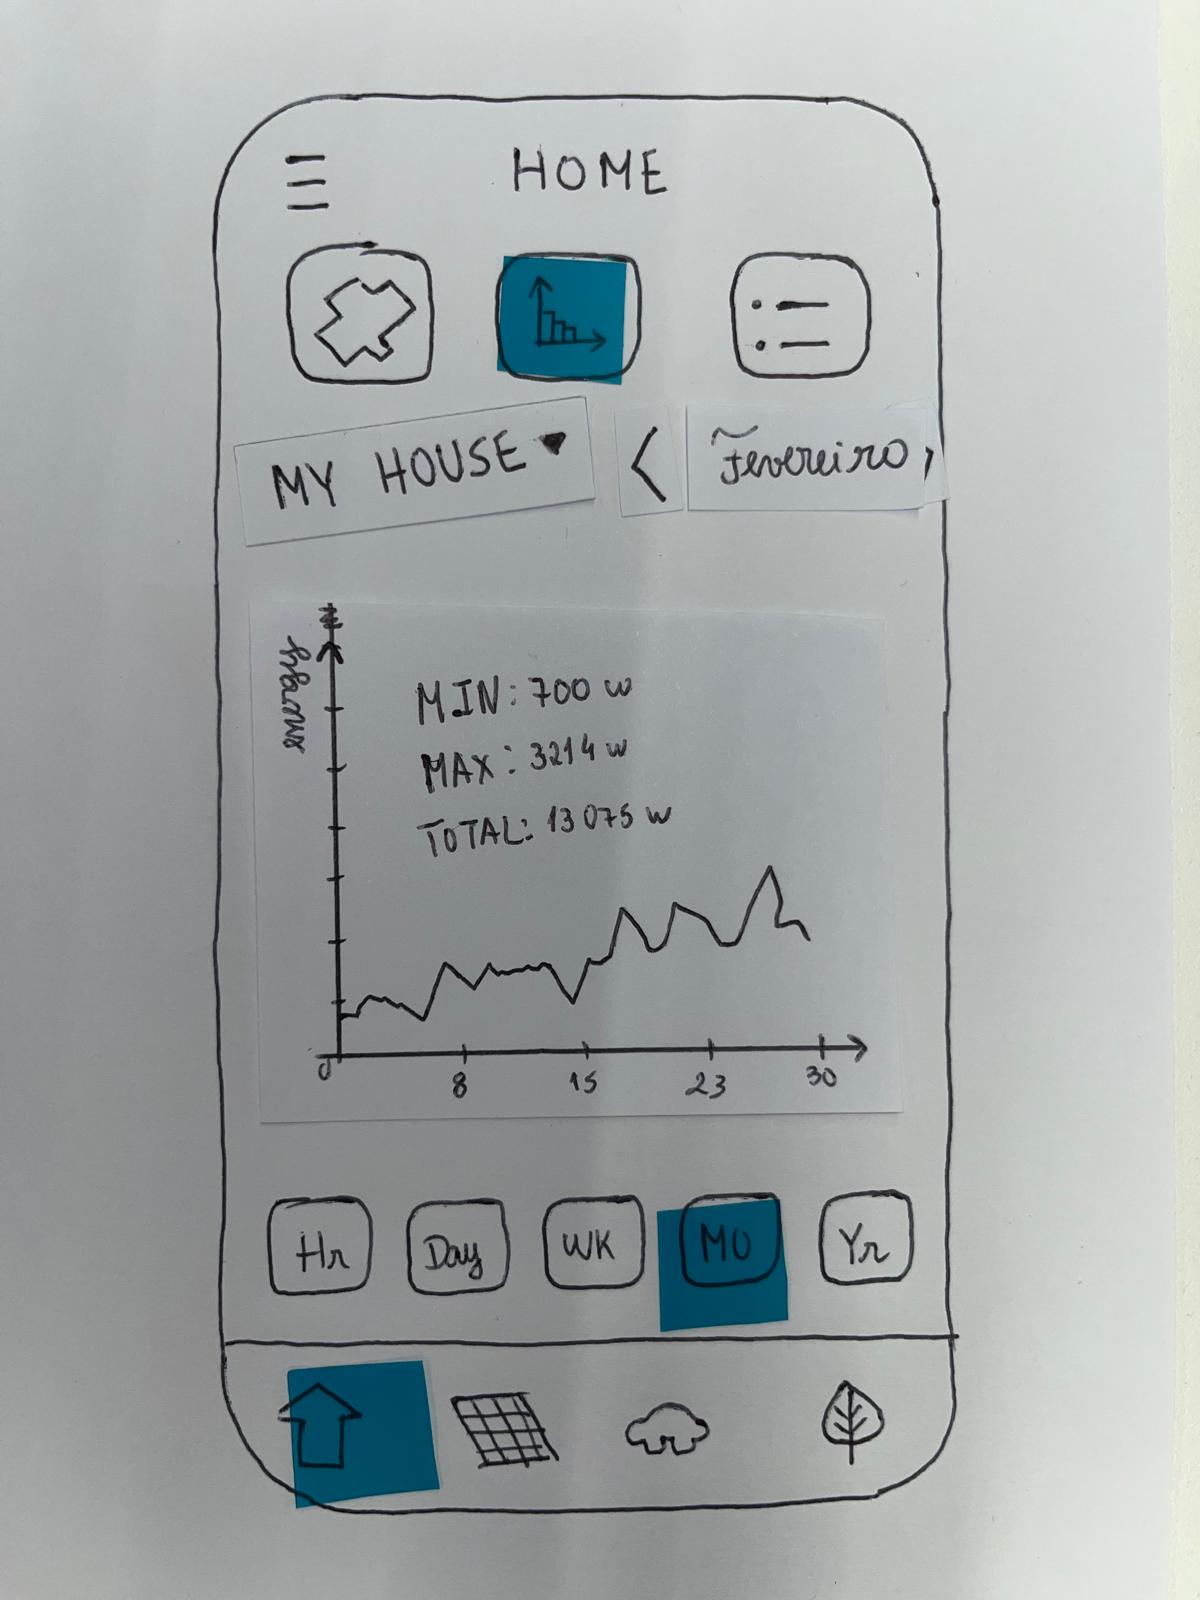 HOME
MY HOUSE
Fevereiro
MIN: 700 w
MAX: 3214 w
TOTAL: 13075 w
0 8 15 23 30
Hr Day WK MO Yr